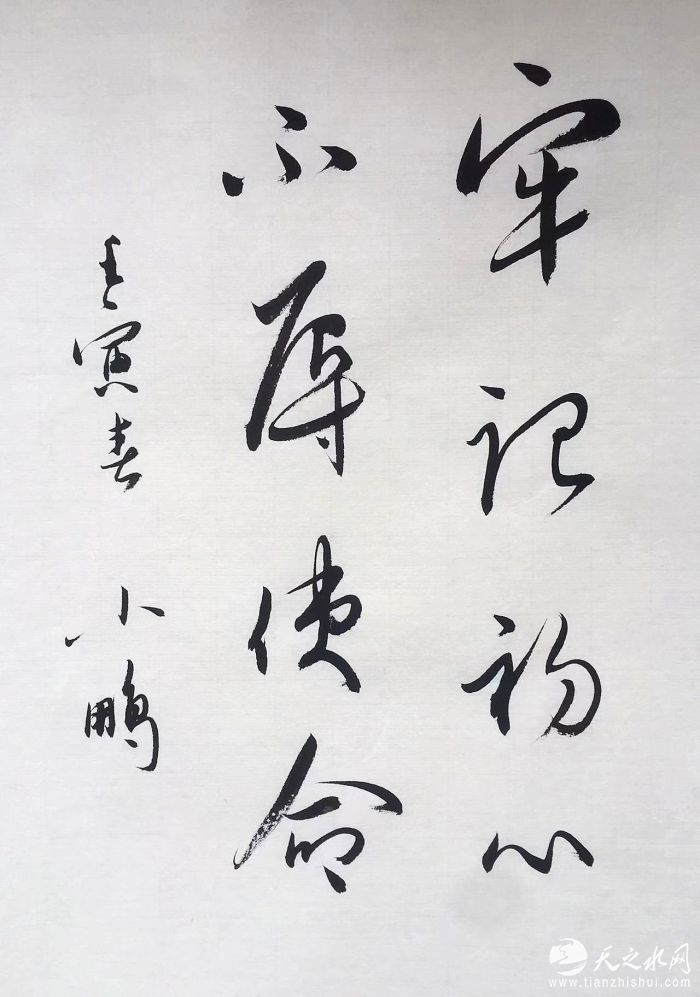 牢记初心
不辱使命
壬寅春 小鹏
天之水网
www.tianzhishui.com